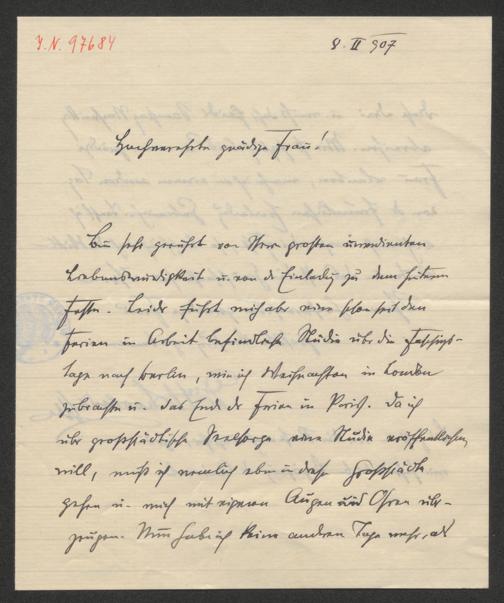 J.N. 97684
8. II 907
Hochverehrte gnädige Frau!
Bin sehr gerührt von Ihrer großen unverdienten
Liebenswürdigkeit u. von d. Einladg zu dem heitern
Feste. Leider führt mich aber eine schon seit den
Ferien in Arbeit befindliche Studie über die Faschings-
tage nach Berlin, wie ich Weihnachten in London
zubrachte u. das Ende der Ferien in Paris. Da ich
über großstädtische Seelsorge eine Studie veröffentlichen
will, muß ich nemlich eben in diese Großstädte
gehen u. mich mit eigenen Augen und Ohren über-
zeugen. Nun hab ich keine anderen Tage mehr, als